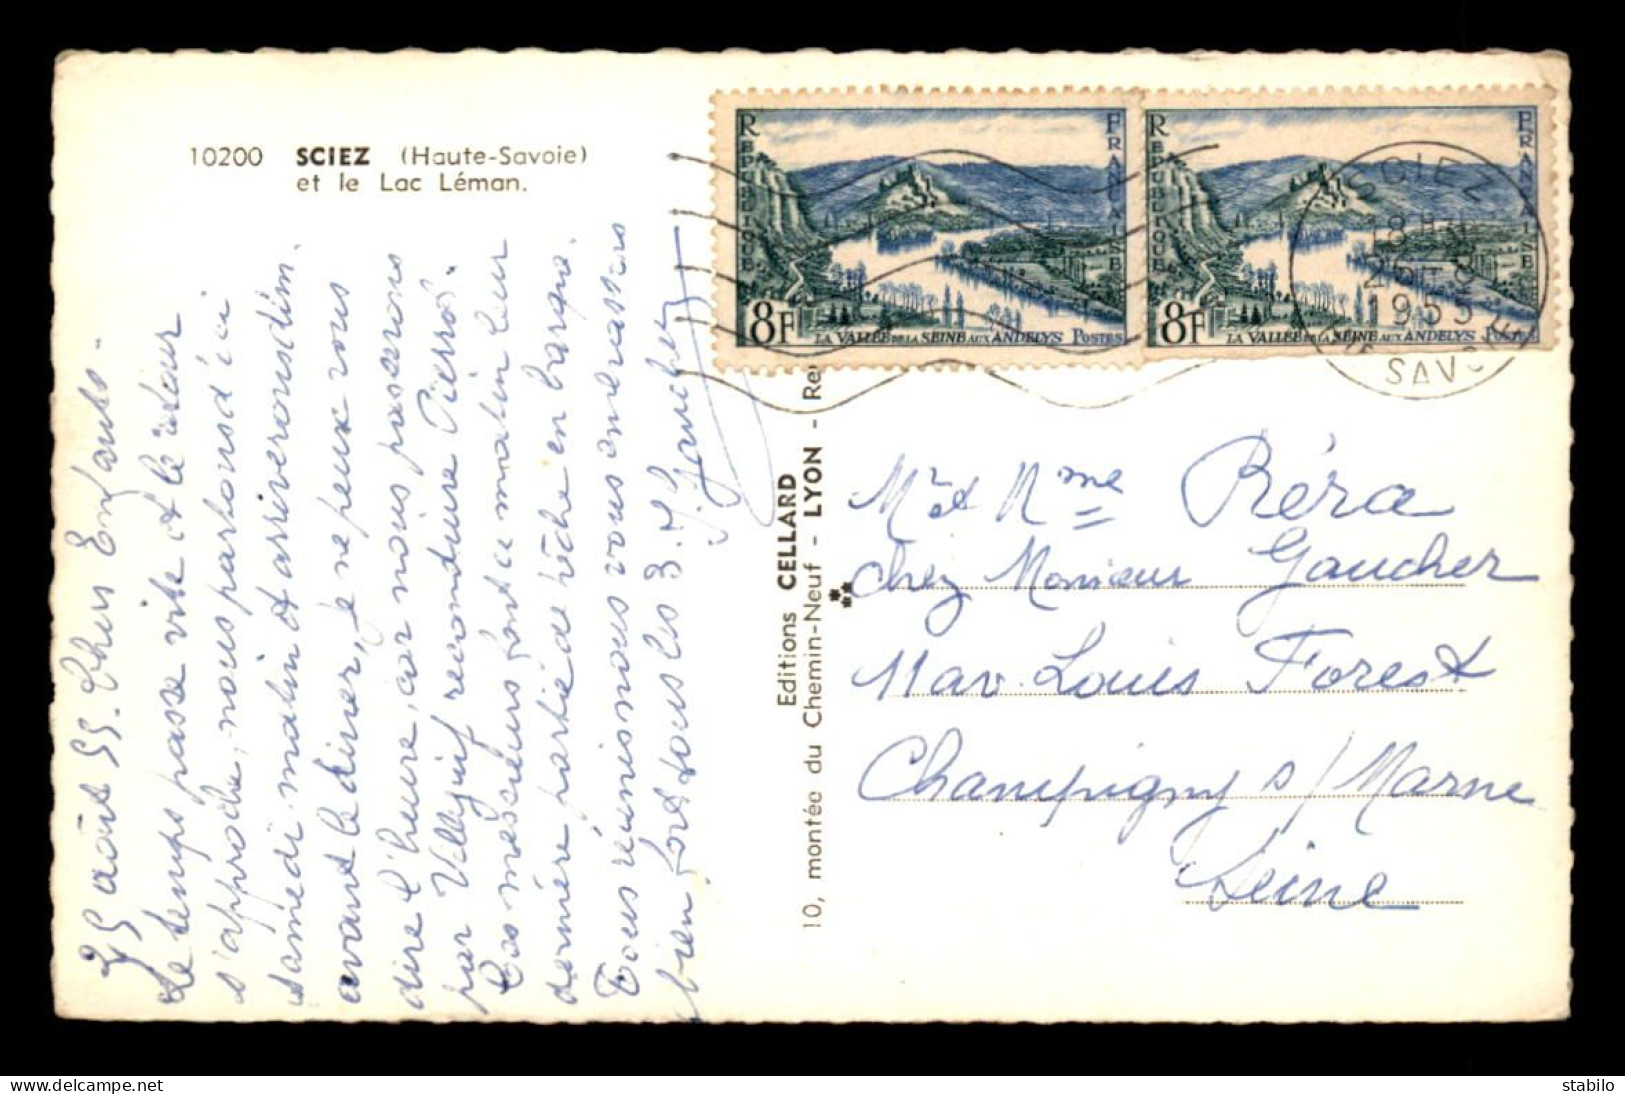 10200 SCIEZ (Haute-Savoie)
et le Lac Léman.
25 août 55. Chers Enfants.
Le temps passe vite et le retour
s'approche, nous partons d'ici
samedi matin et arriverons dim.
avant le diner, je ne peux vous
dire l'heure, car nous passerons
par Villejuif reconduire Pierrot.
Ces messieurs font ce matin leur
dernière partie de pêche en barque.
Tous réunis nous vous embrassons
bien fort tous les 3. Gaucher
Editions CELLARD
10, montée du Chemin-Neuf - LYON - Re
REPUBLIQUE FRANÇAISE
8F
LA VALLÉE DE LA SEINE AUX ANDELYS POSTES
REPUBLIQUE FRANÇAISE
8F
LA VALLÉE DE LA SEINE AUX ANDELYS POSTES
SCIEZ
18H
26-8
1955
HTE SAVOIE
Mr et Mme Réra
chez Monsieur Gaucher
11 av. Louis Forest
Champigny s/Marne
Seine
stabilo